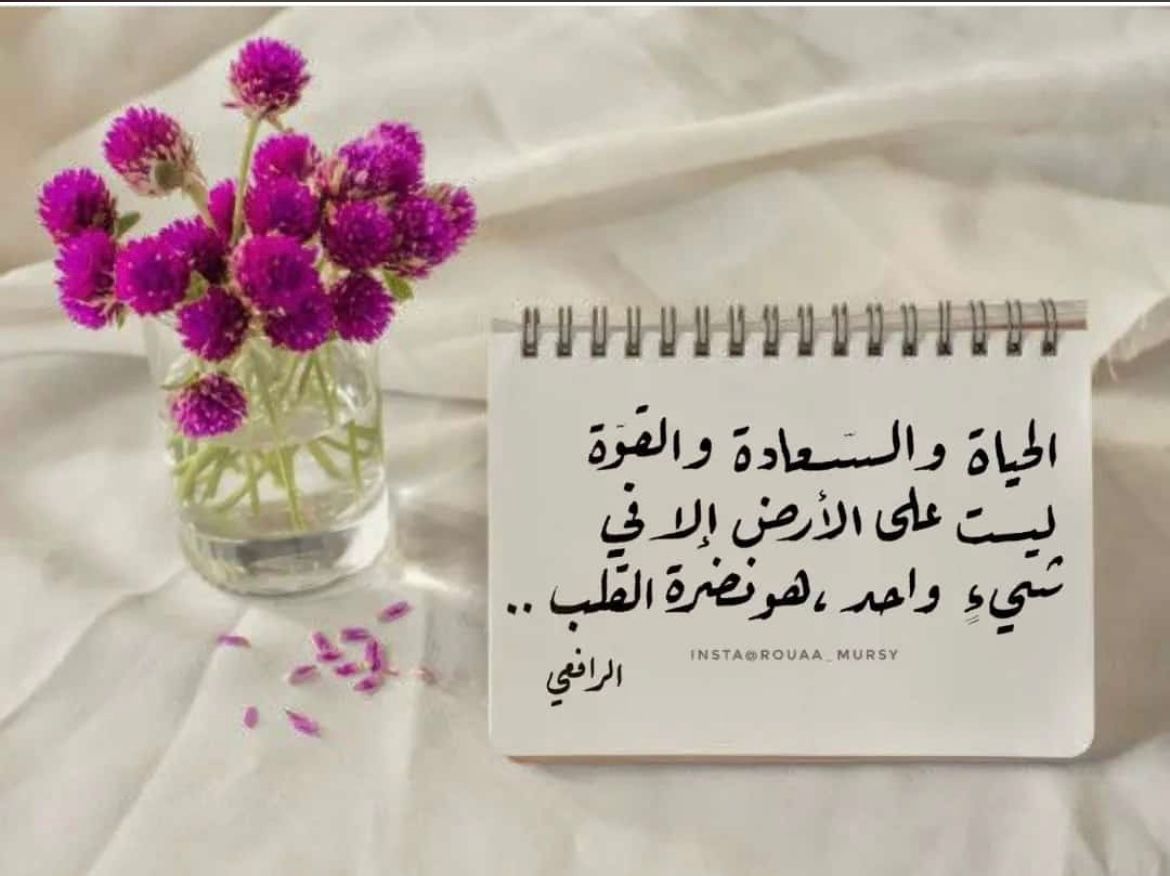 الحياة والسّعادة والقوّة
ليست على الأرض إلا في
شيءٍ واحد، هو نضرة القلب ..
INSTA@ROUAA_MURSY
الرافعي